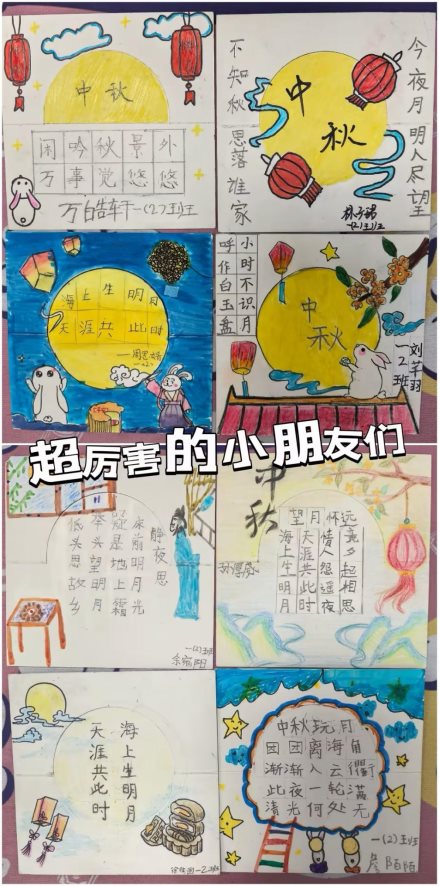 中秋
闲吟秋景外
万事觉悠悠
一(2)班
今夜月明人尽望
不知秋思落谁家
中秋
一(2)班
海上生明月
天涯共此时
小时不识月
呼作白玉盘
中秋
一2班
刘芊羽
超厉害的小朋友们
静夜思
床前明月光
疑是地上霜
举头望明月
低头思故乡
一(2)班
中秋
望月怀远
海上生明月
天涯共此时
情人怨遥夜
竟夕起相思
海上生明月
天涯共此时
一2班
中秋玩月
团团离海角
渐渐入云衢
此夜一轮满
清光何处无
一(2)班
詹陌陌